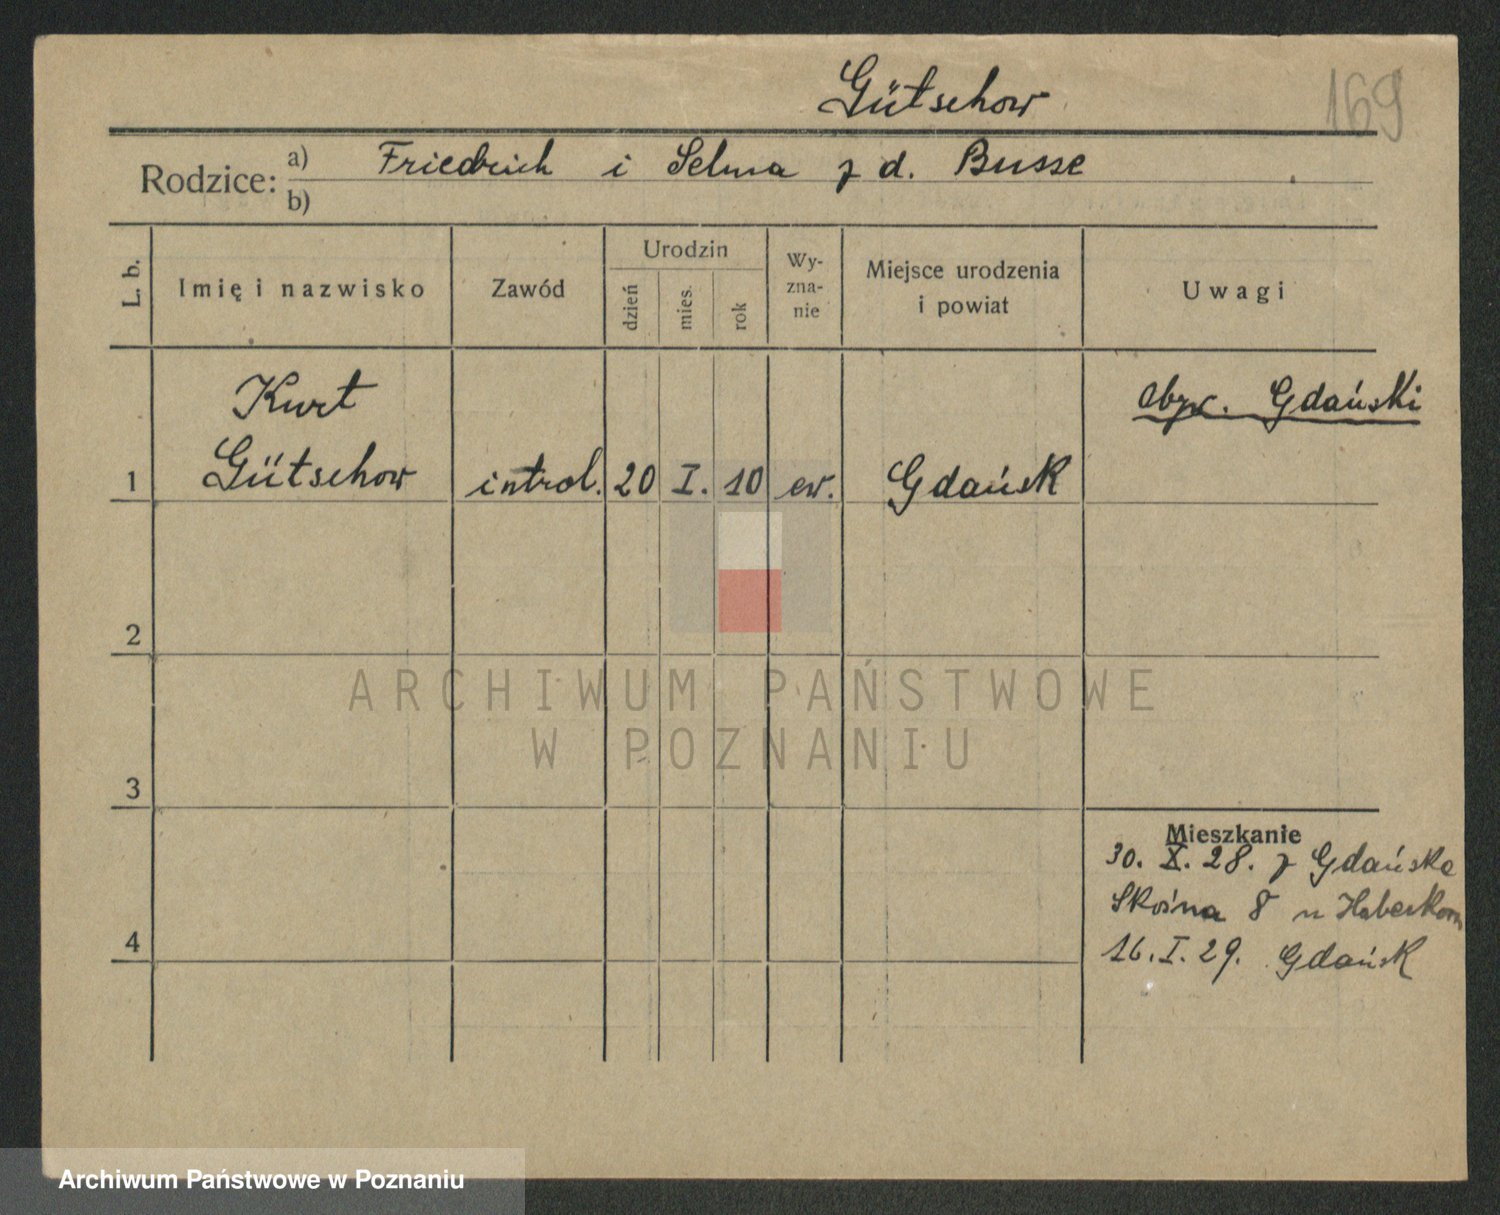 Gütschow
169
Rodzice: a) Friedrich i Selma z d. Busse
b)
L. b.
Imię i nazwisko
Zawód
Urodzin
dzień
mies.
rok
Wy-
zna-
nie
Miejsce urodzenia
i powiat
Uwagi
Kurt
obyw. Gdański
1 Gütschow introl. 20 I. 10 ew. Gdańsk
2
3
4
Mieszkanie
30. X. 28. z Gdańska
Skośna 8 u Haberkorn
16. I. 29. Gdańsk
ARCHIWUM PAŃSTWOWE
W POZNANIU
Archiwum Państwowe w Poznaniu